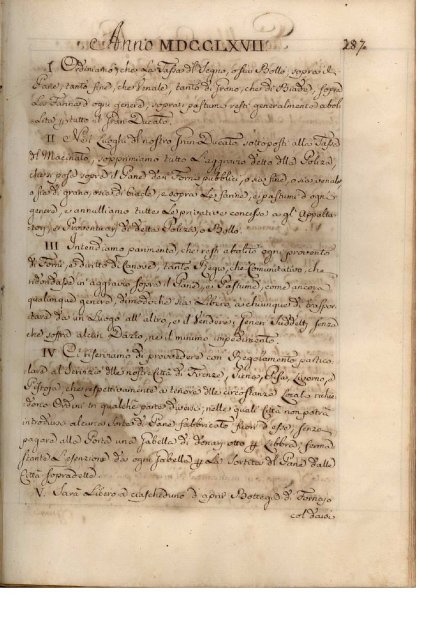 Anno MDCCLXVII 287
I Ordiniamo che La Tassa del Segno, o sia Bollo sopra il
Pane, tanto fine, che Venale, tanto di Grano, che di Biade, sopra
Le Farine d'ogni genere, sopra i pastumi resti generalmente abol
tutto il Gran Ducato.
II Nei Luoghi del nostro Gran Ducato sottoposti alla Tassa
del Macinato, sopprimiamo tutto L'aggravio detto della Poliza,
che si pose sopra il Pane dei Forni pubblici, o sia fine, o sia venale,
o sia di grano, o sia di biade, e sopra Le farine, e pastumi d'ogni
genere, e annulliamo tutte Le privative concesse agl' Appalta
tori, e Proventuarj di detta Poliza, o Bollo.
III Intendiamo parimente, che resti abolito ogni provento
di Forni, e diritto di Canove, tanto Regio, che Comunitativo, che
ridondasse in aggravio sopra il Pane, e Pastumi, come ancora
qualunque genere, dimodoche sia Libero a chiunque di traspor
tare da un Luogo all' altro, e il Vendere i generi suddetti, senza
che soffra alcun Dazio, ne il minimo impedimento.
IV Ci riserviamo di provvedere con Regolamento partico
lare al Servizio delle nostre Città di Firenze, Siena, Pisa, Livorno, e
Pistoja, che respettivamente a tenore delle circostanze Locali richie
dono Ordini in qualche parte diversi; nelle quali Città non potrà
introdursi alcuna sorte di Pane fabbricato fuori d' esse, senza
pagare alla Porta una Gabella di denari otto Libbra, ferma
stante L'esenzione da ogni Gabella La Sortita del Pane dalle
Città sopradette.
V. Sarà Libero a ciascheduno d'aprir Bottega di Fornajo
col